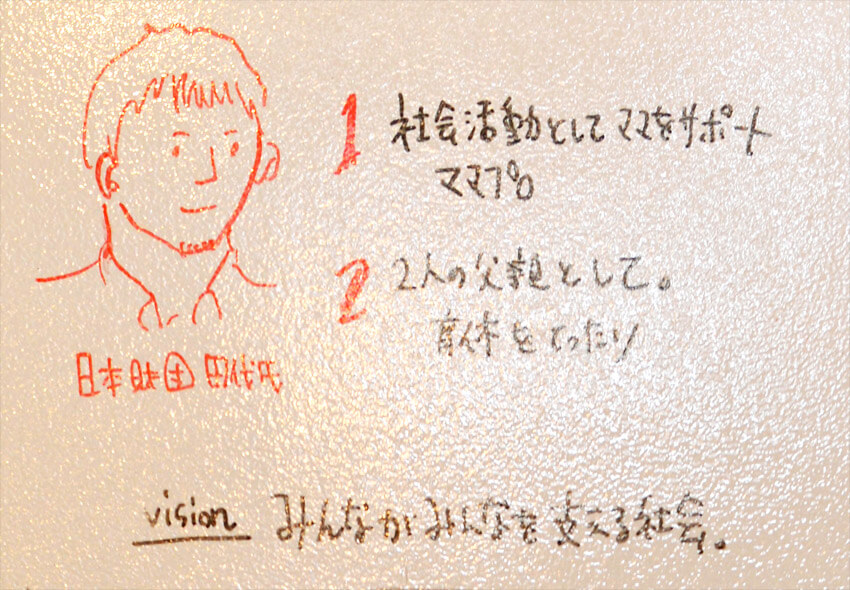 1 社会活動としてママをサポート
ママプロ
2 2人の父親として。
育休をとったり
日本財団 田代氏
vision みんながみんなを支える社会。